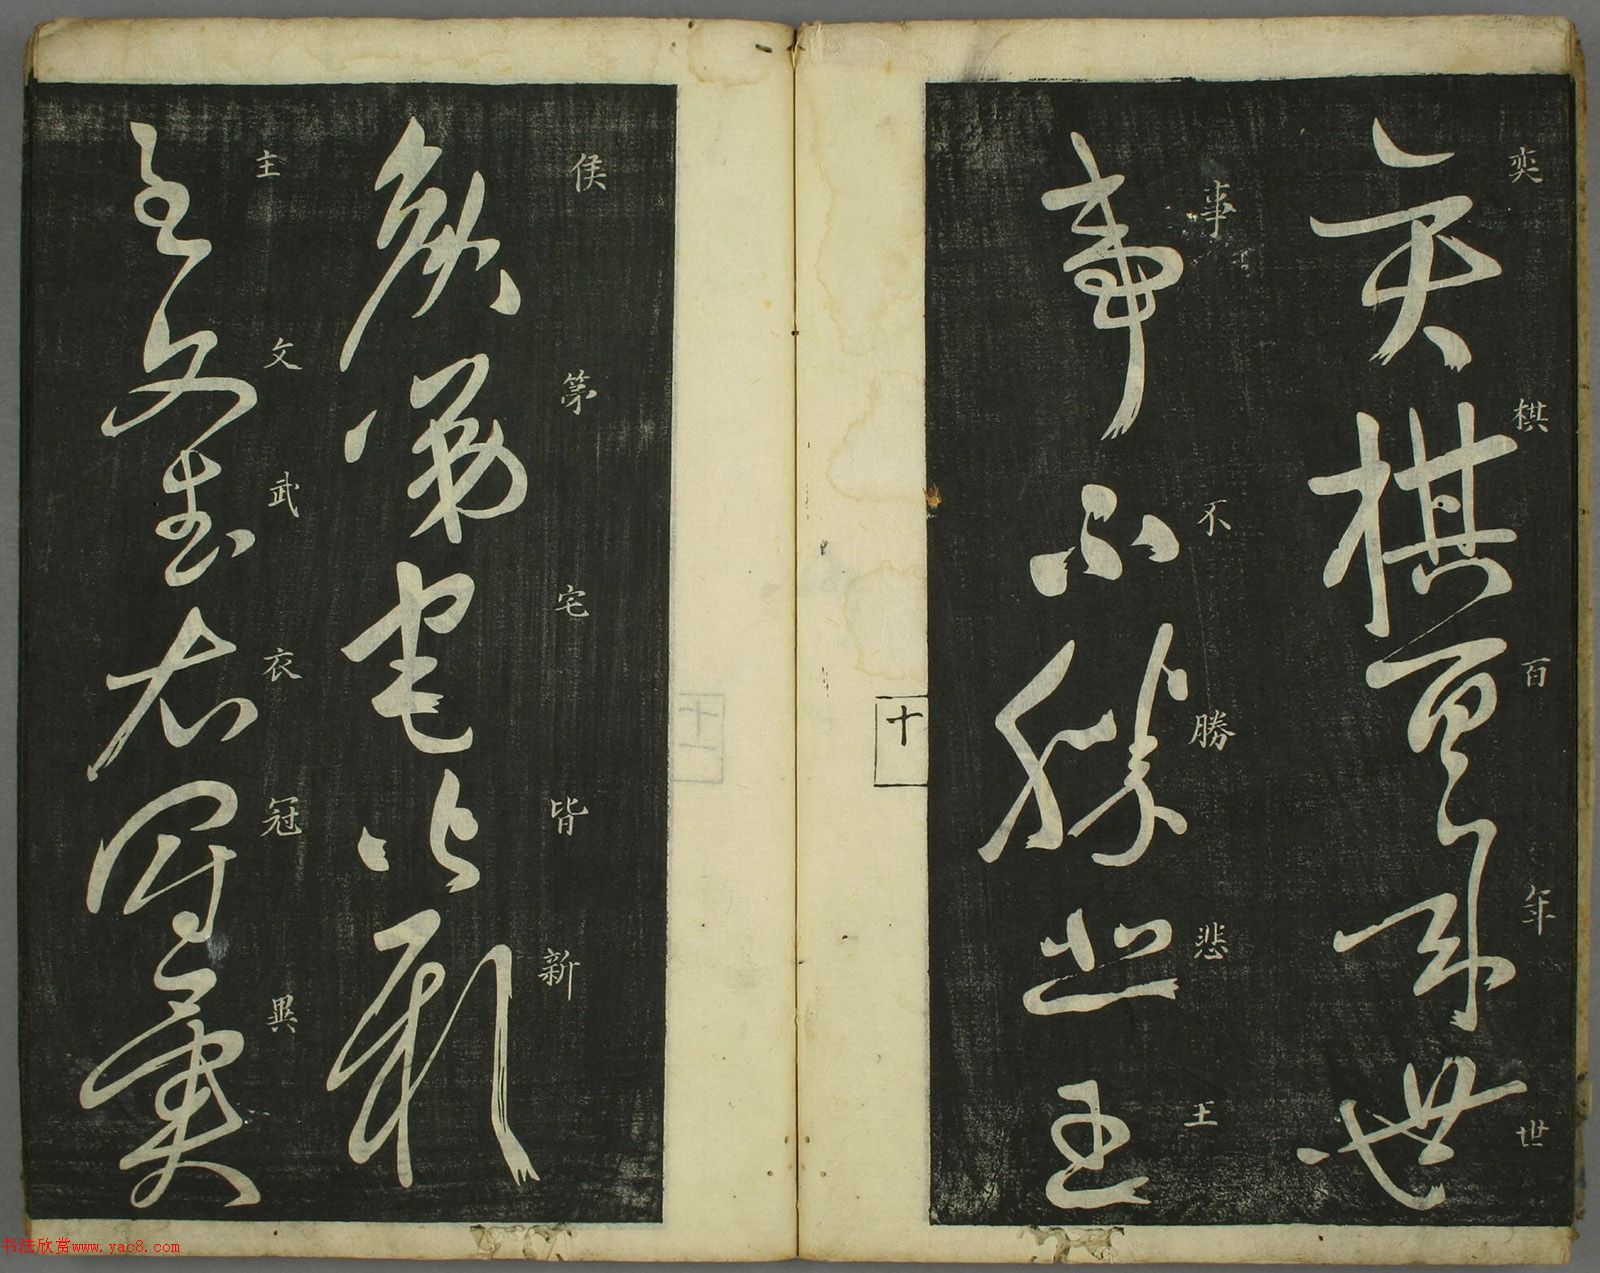 奕棋百年世
事不勝悲王
十
侯第宅皆新
主文武衣冠異
书法欣赏www.yac8.com